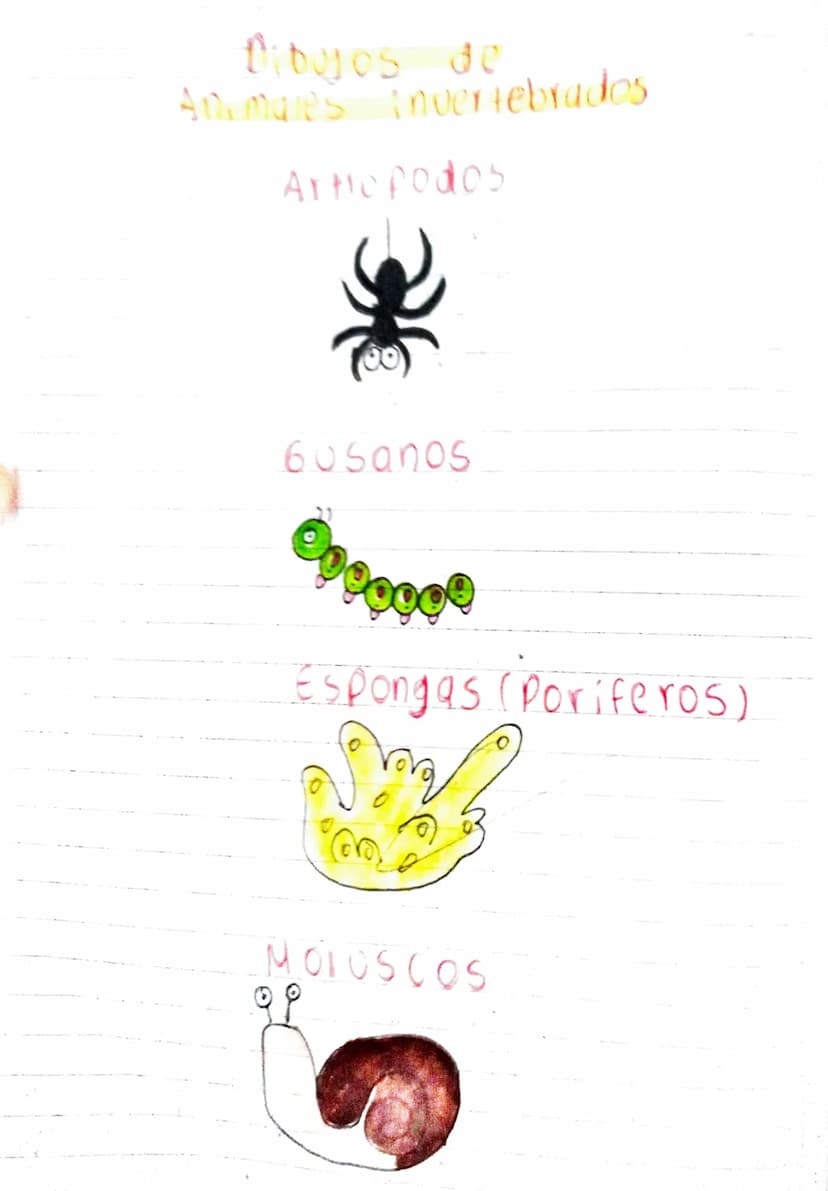 Dibujos de
Animales invertebrados
Artropodos
Gusanos
Espongas (Poriferos)
Moluscos